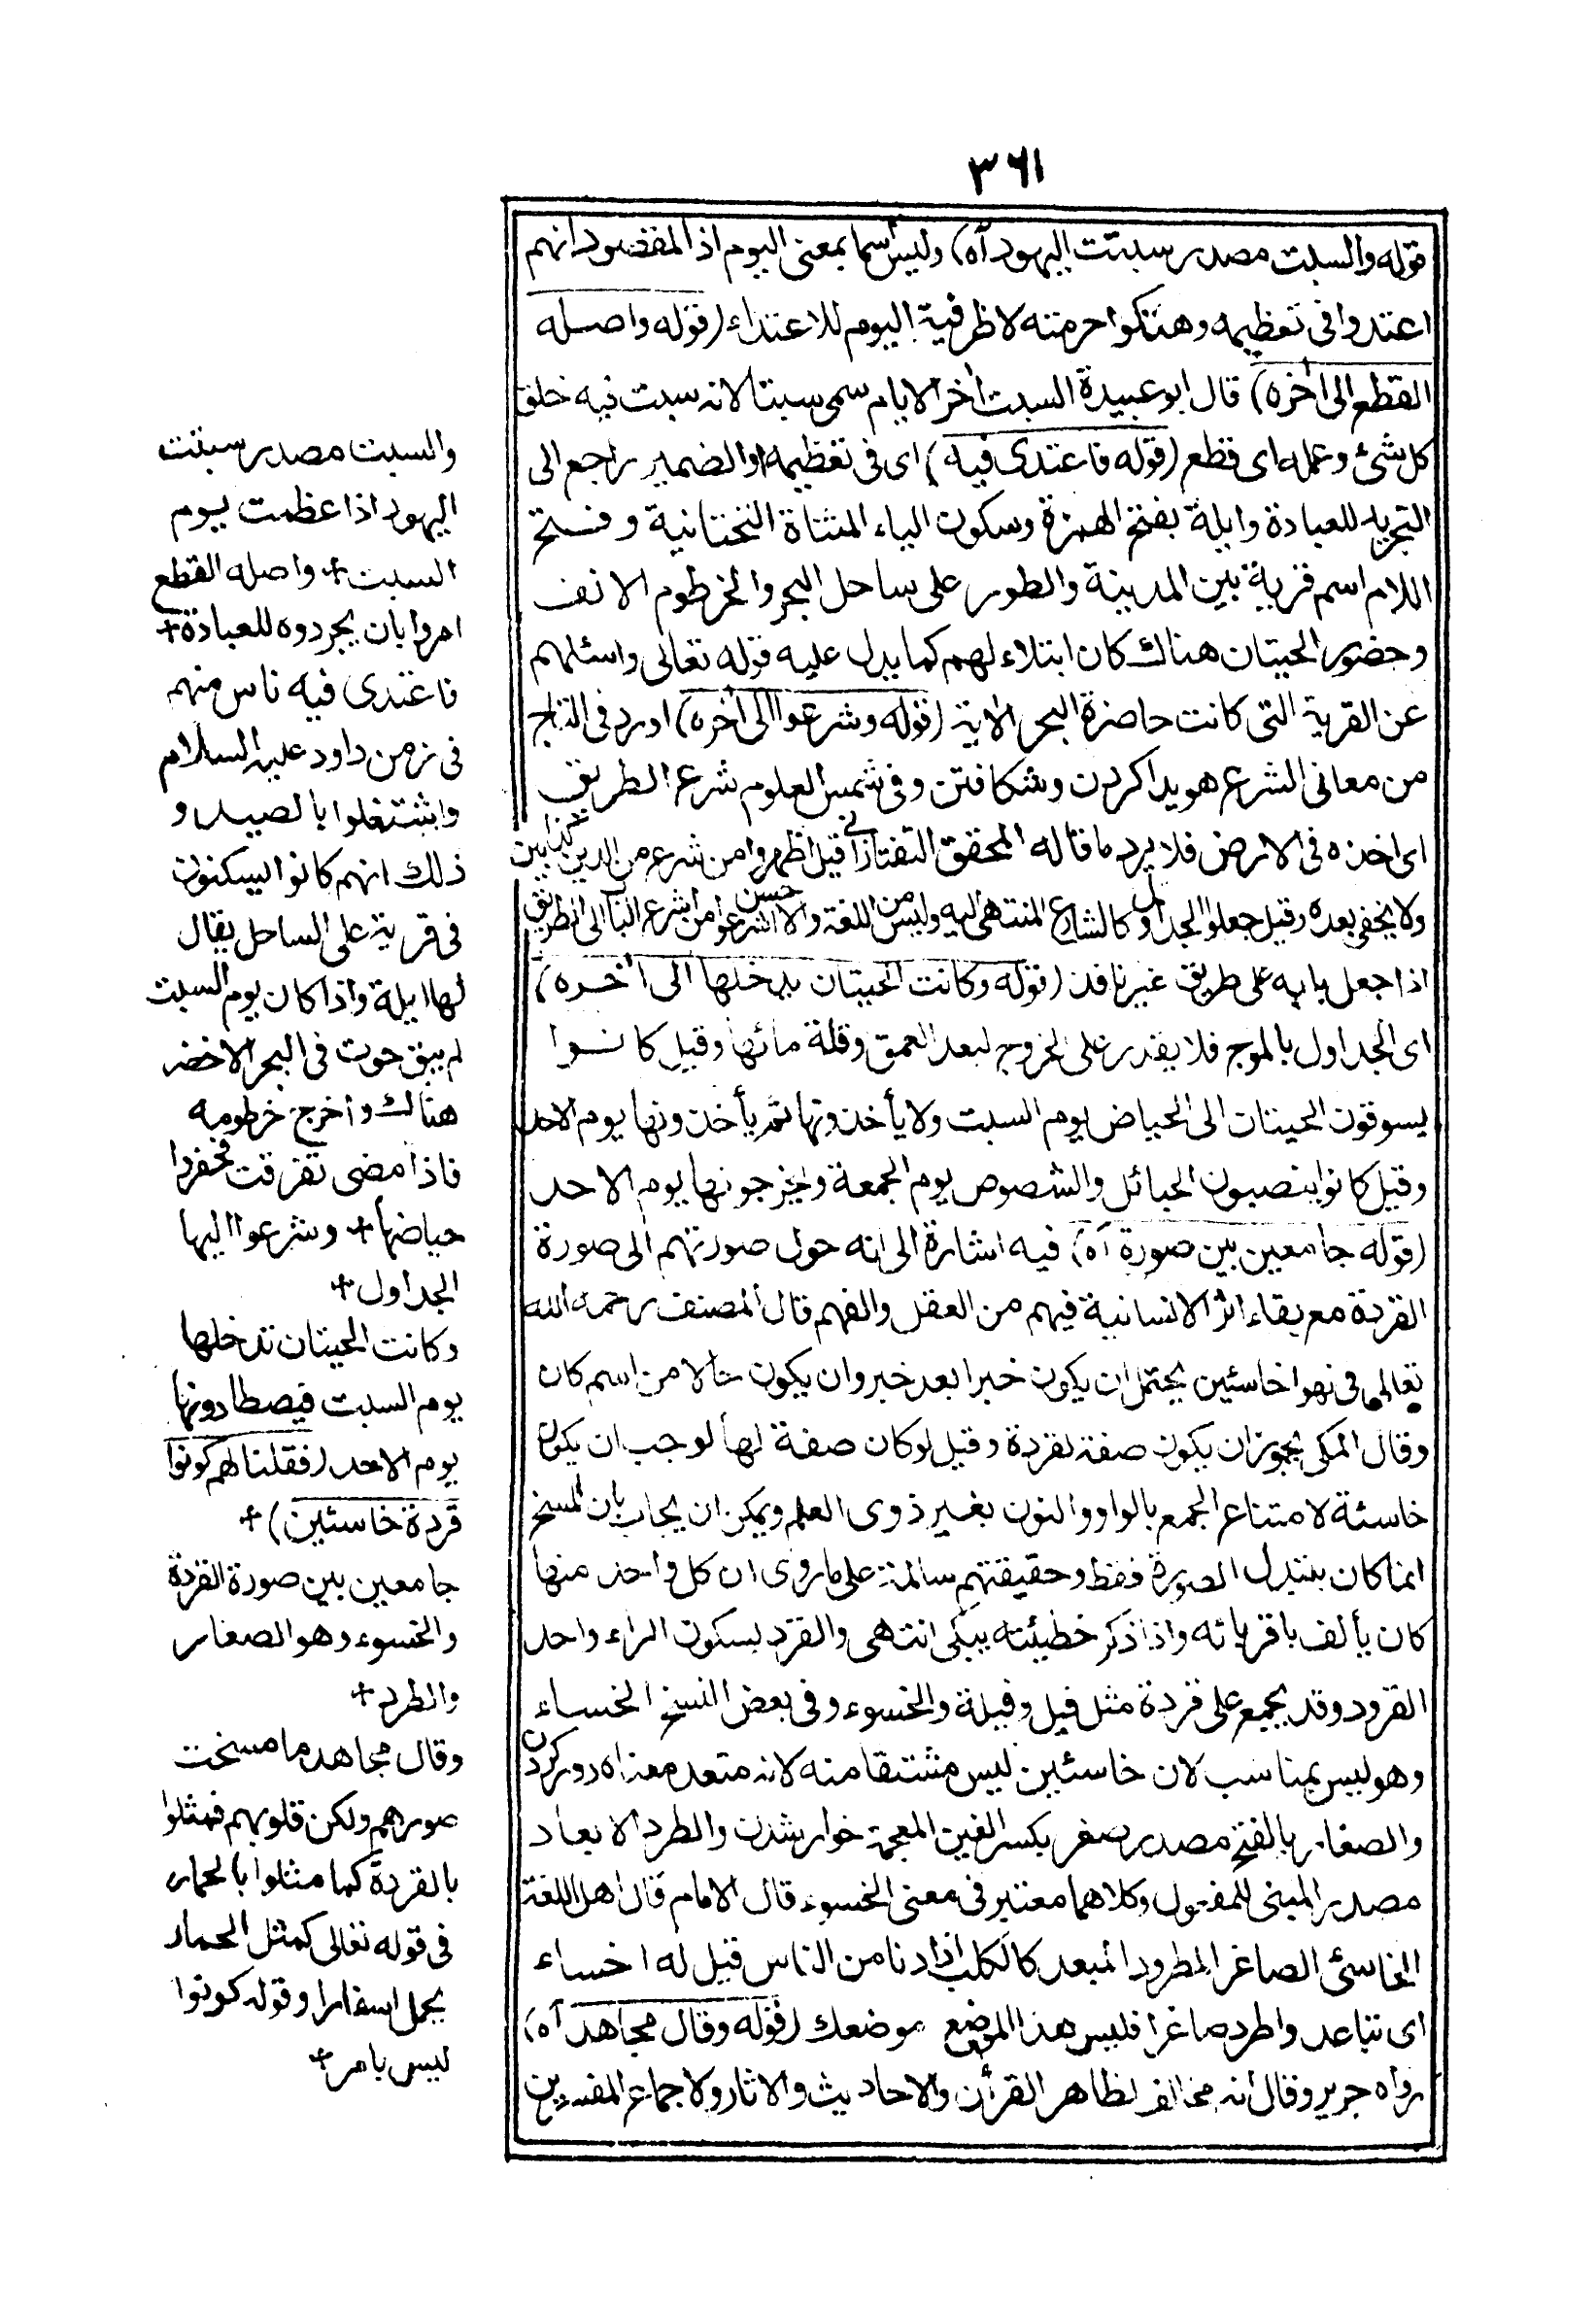 ٣٦١
قوله والسبت مصدر سبتت اليهود آه) وليس اسما بمعنى اليوم اذ المقصود انهم
اعتدوا فى تعظيمه وهتكوا حرمته لا ظرفية اليوم للاعتداء (قوله واصله
القطع الى أخره) قال ابو عبيدة السبت أخر الايام سمى سبتا لانه سبت فيه خلق
كل شئ وعمله اى قطع (قوله فاعتدى فيه) اى فى تعظيمه والضمير راجع الى
التجريد للعبادة وايلة بفتح الهمزة وسكون الياء المثناة التحتانية وفتح
اللام اسم قرية بين المدينة والطور على ساحل البحر والخرطوم الانف
وحضور الحيتان هناك كان ابتلاء لهم كما يدل عليه قوله تعالى واسئلهم
عن القرية التى كانت حاضرة البحر الاية (قوله وشرعوا الى أخره) اورد فى التاج
من معانى الشرع هويدا كردن وشكافتن وفى شمس العلوم شرع الطريق
اى اخذه فى الارض فلا يرد ما قاله المحقق التفتازانى قيل اظهروا من شرع من الدين كذا بين
ولا يخفى بعده وقيل جعلوا الجداول كالشارع المنتهى اليه وليس من اللغة والاحسن اشرعوا من اشرع الباب الى الطريق
اذا جعل بابه على طريق غير نافذ (قوله وكانت الحيتان يدخلها الى أخره)
اى الجداول بالموج فلا يقدر على الخروج لبعد العمق وقلة مائها وقيل كانوا
يسوقون الحيتان الى الحياض يوم السبت ولا يأخذونها ثم يأخذونها يوم الاحد
وقيل كانوا ينصبون الحبائل والشصوص يوم الجمعة ويخرجونها يوم الاحد
(قوله جامعين بين صورة آه) فيه اشارة الى انه حول صورتهم الى صورة
القردة مع بقاء اثر الانسانية فيهم من العقل والفهم قال المصنف رحمه الله
تعالى فى نهوا خاسئين يحتمل ان يكون خبرا بعد خبر وان يكون حالا من اسم كان
وقال المكى يجوز ان يكون صفة لقردة وقيل لو كان صفة لها لوجب ان يكون
خاسئة لامتناع الجمع بالواو والنون بغير ذوى العلم ويمكن ان يجاب بان المسخ
انما كان بتبدل الصورة فقط وحقيقتهم سالمة على ما روى ان كل واحد منها
كان يألف باقربائه واذا ذكر خطيئته يبكى انتهى والقرد بسكون الراء واحد
القرود وقد يجمع على قردة مثل فيل وفيلة والخسوء وفى بعض النسخ الخساء
وهو ليس بمناسب لان خاسئين ليس مشتقا منه لانه متعد معناه دور كردن
والصغار بالفتح مصدر صغر بكسر الغين المعجمة خوار شدن والطرد الابعاد
مصدر المبنى للمفعول وكلاهما معتبر فى معنى الخسوء قال الامام قال اهل اللغة
الخاسئ الصاغر المطرود المبعد كالكلب اذا دنا من الناس قيل له اخساء
اى تباعد واطرد صاغرا فليس هذا الموضع موضعك (قوله وقال مجاهد آه)
رواه جرير وقال انه مخالف لظاهر القرأن والاحاديث والاثار ولاجماع المفسرين
والسبت مصدر سبتت
اليهود اذا عظمت يوم
السبت + واصله القطع
امروا بان يجردوه للعبادة +
فاعتدى فيه ناس منهم
فى زمن داود عليه السلام
واشتغلوا بالصيد و
ذلك انهم كانوا يسكنون
فى قرية على الساحل يقال
لها ايلة واذا كان يوم السبت
لم يبق حوت فى البحر الاحضر
هناك واخرج خرطومه
فاذا مضى تفرقت فحفروا
حياضها + وشرعوا اليها
الجداول +
وكانت الحيتان تدخلها
يوم السبت فيصطادونها
يوم الاحد (فقلنا لهم كونوا
قردة خاسئين) +
جامعين بين صورة القردة
والخسوء وهو الصغار
والطرد +
وقال مجاهد ما مسخت
صورهم ولكن قلوبهم فمثلوا
بالقردة كما مثلوا بالحمار
فى قوله تعالى كمثل الحمار
يحمل اسفارا وقوله كونوا
ليس بامر +